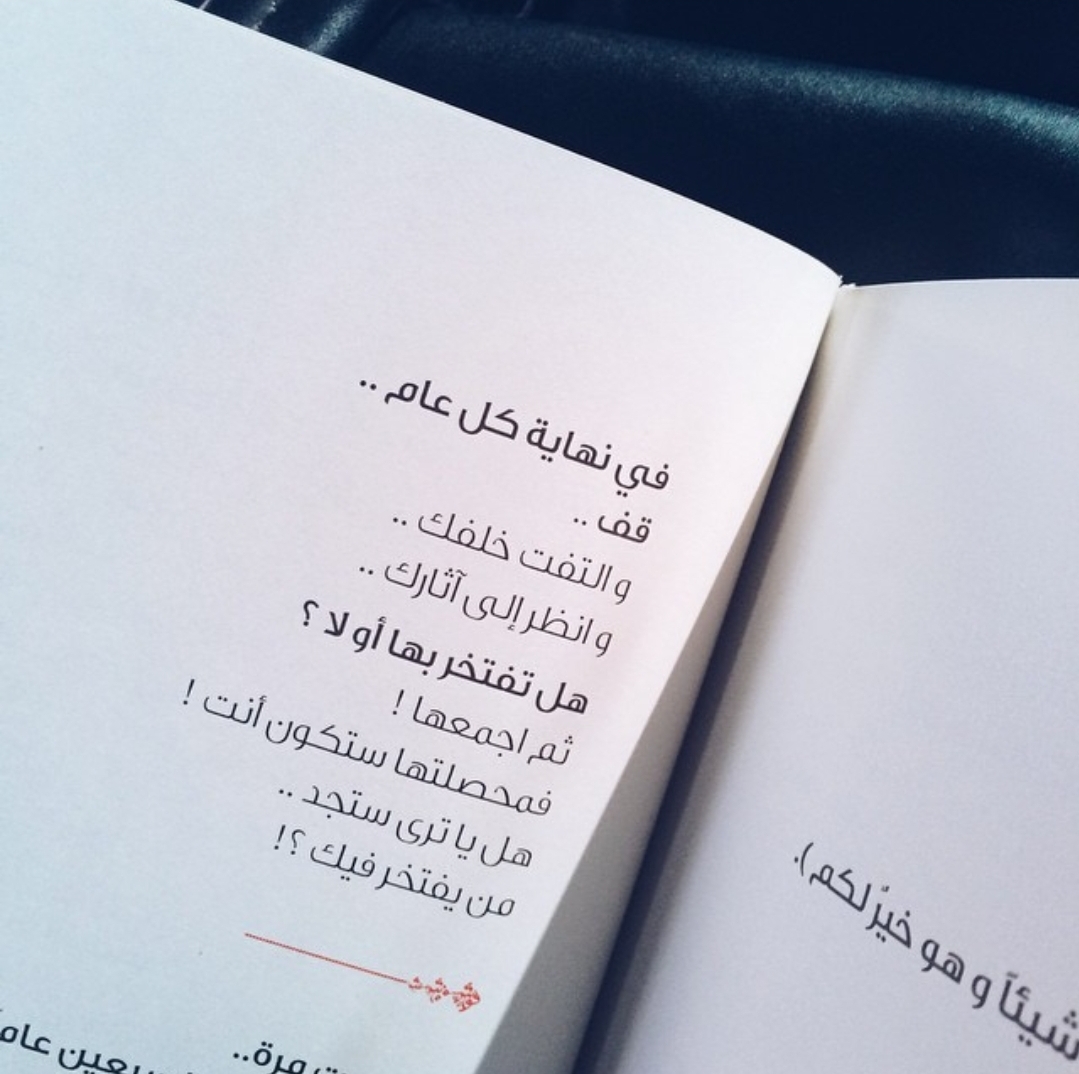 في نهاية كل عام ..
قف ..
والتفت خلفك ..
وانظر إلى آثارك ..
هل تفتخر بها أولا ؟
ثم اجمعها !
فمحصلتها ستكون أنت !
هل يا ترى ستجد ..
من يفتخر فيك ؟!
مرة..
عاماً
شيئاً وهو خيرٌ لكم).